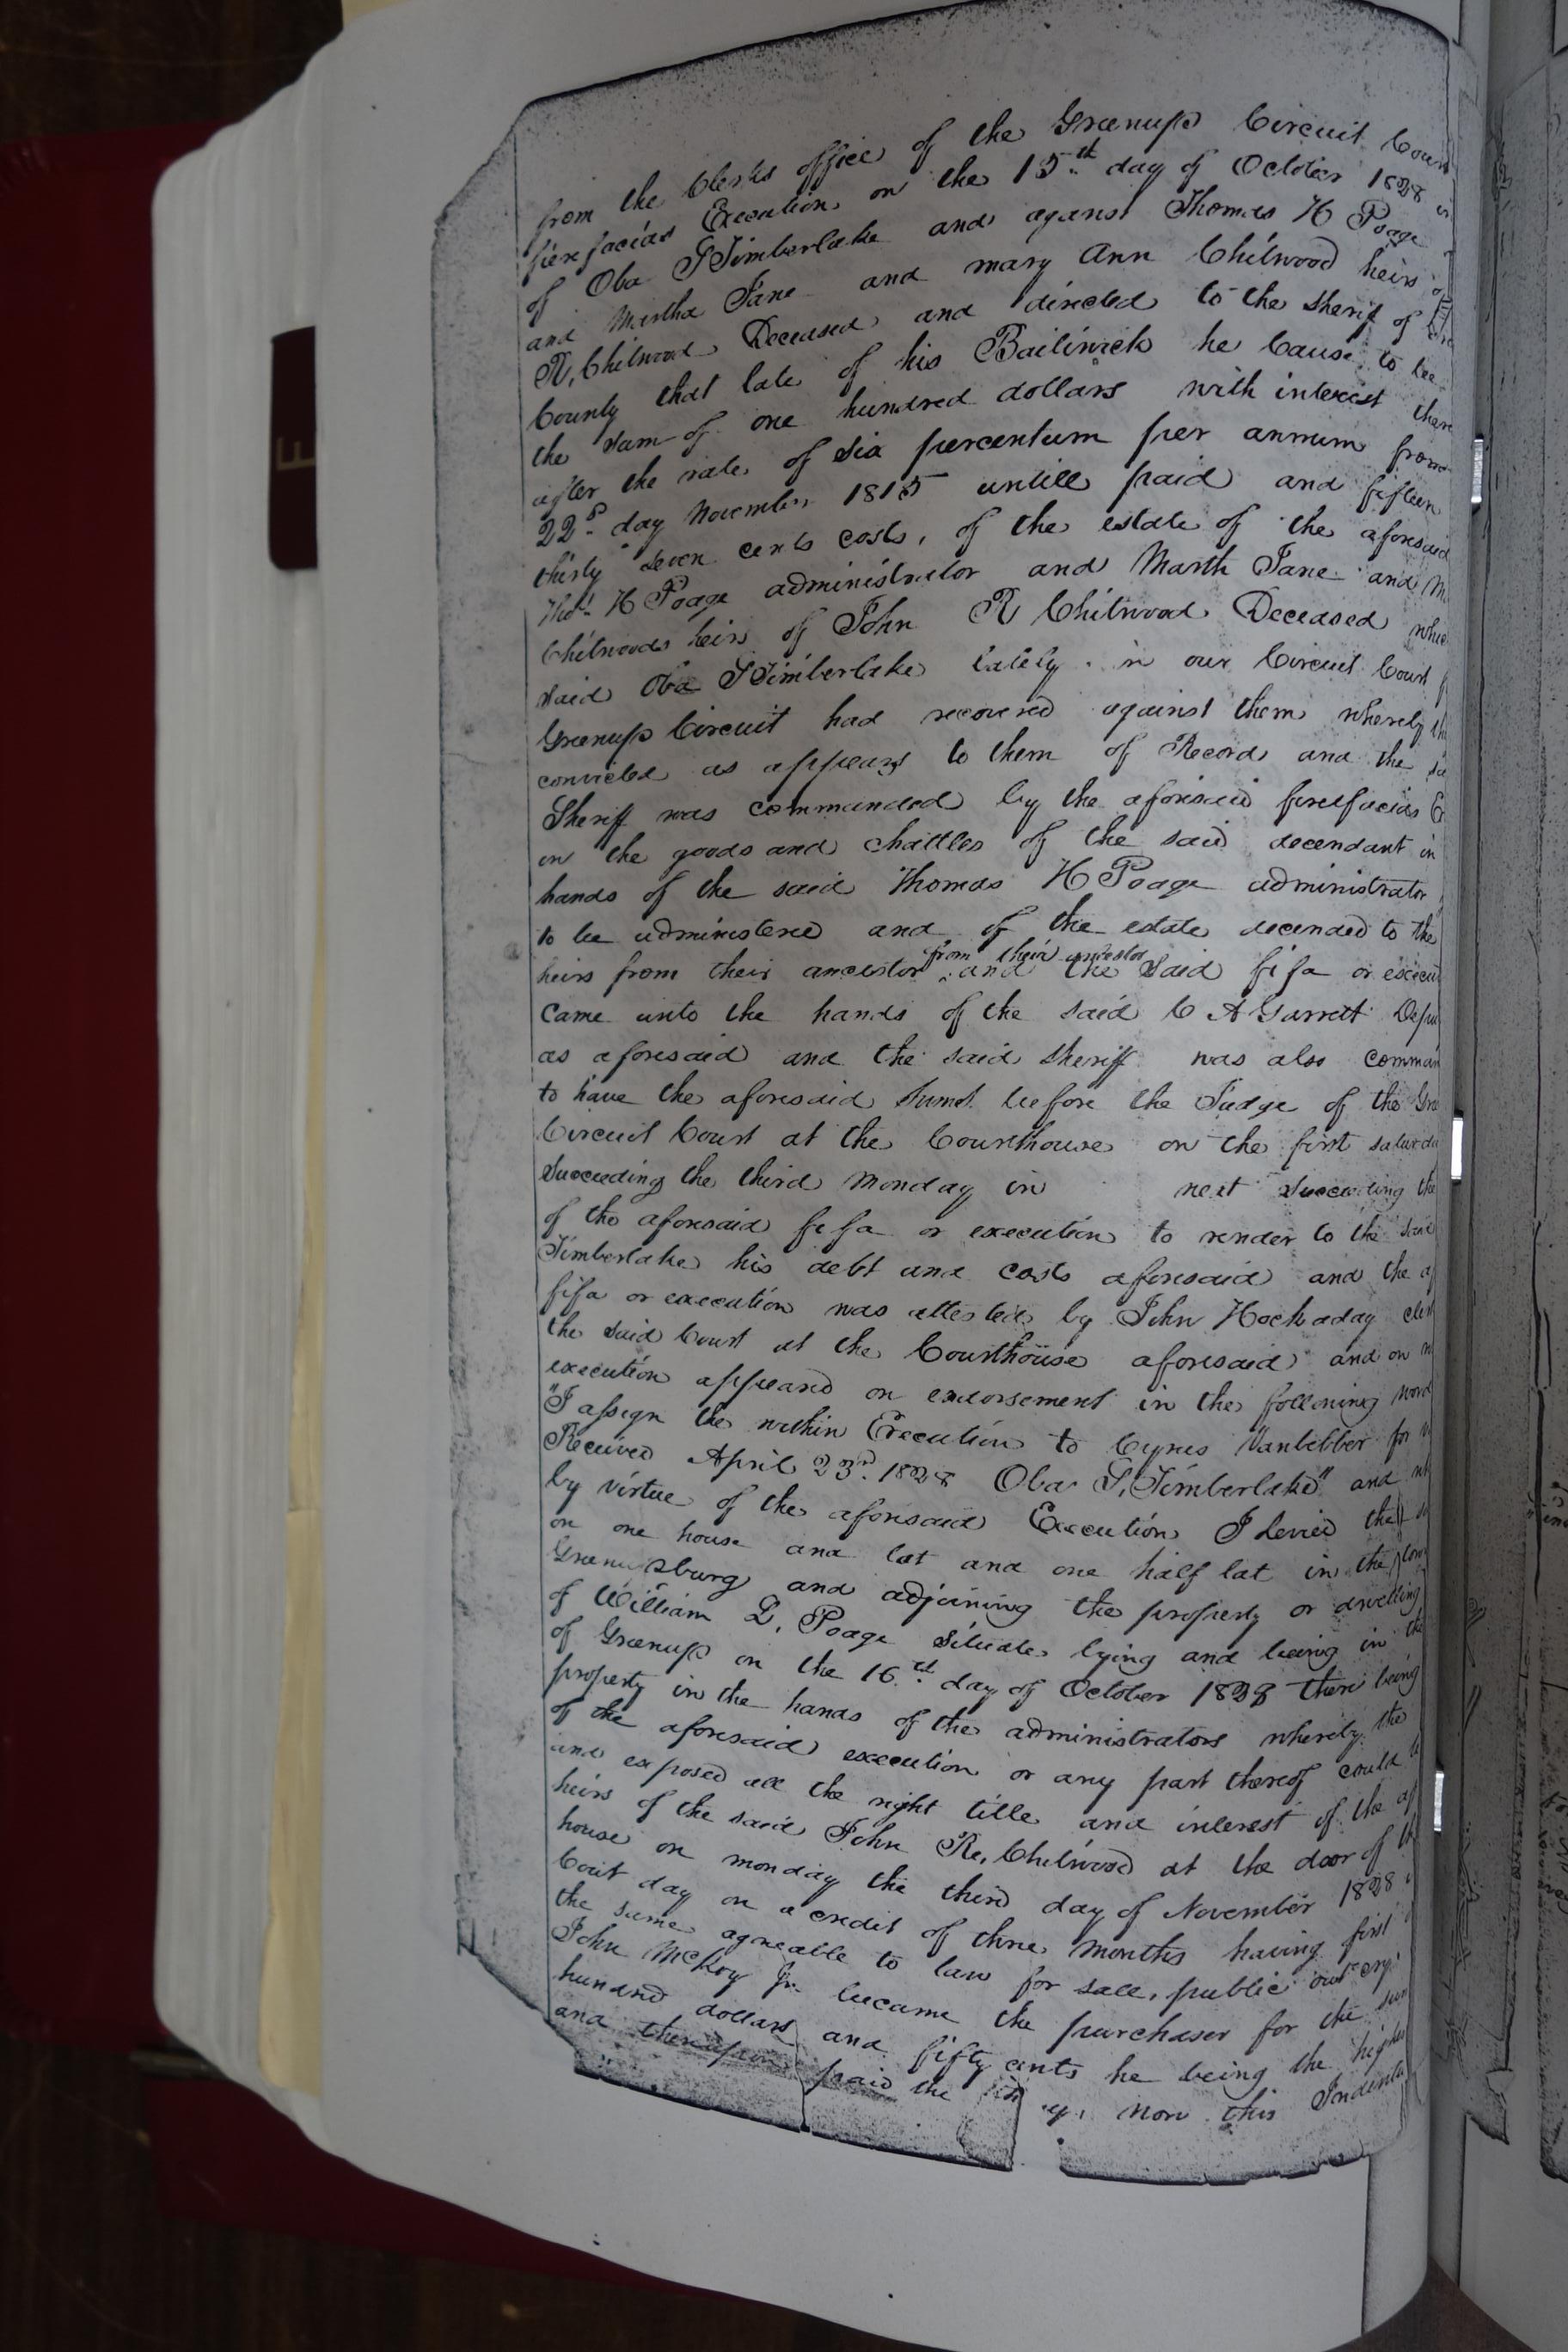 from the Clerks office of the Greenup Circuit Cour
fierefacias Execution on the 15th day of October 1828 in
of Oba T Timberlake and against Thomas H Poage
and Martha Jane and mary Ann Chitwood heirs of
R, Chitwood Deceased and directed to the Sherif of
County that late of his Bailiwick he Cause to be
the sum of one hundred dollars with interest there
after the rate of six percentum per annum from
22d day November 1815 untill paid and fifteen
thirty seven cents costs, of the estate of the aforesaid
Thos H Poage administrator and Marth Jane and M
Chitwoods heirs of John R Chitwood Deceased whic
said Oba T Timberlake lately in our Circuit Court f
Greenup Circuit had recovered against them whereby th
convicted as appears to them of Record and the sa
Sheriff was commanded by the aforesaid firefacias E
on the goods and chattles of the said decendant in
hands of the said Thomas H Poage administrator
to be administered and of the estate decended to the
heirs from their ancestor from their ancestor and the said fi fa or execut
Came unto the hands of the said C A Garrett Depu
as aforesaid and the said sheriff was also comman
to have the aforesaid sums before the Judge of the Gre
Circuit Court at the Courthouse on the first saturda
Succeeding the third Monday in next succeeding the
of the aforesaid fi fa or execution to render to the said
Timberlake his debt and costs aforesaid and the af
fifa or execution was attested by John Hockaday cler
the said Court at the Courthouse aforesaid and on
execution appeard on endorsement in the following word
"I assign the within Execution to Cyrus Vanbibber for v
Received April 23rd 1828 Oba T, Timberlake" and wh
by virtue of the aforesaid Execution I levied the s
on one house and lot and one half lot in the town
Greenupsburg and adjoining the property or dwelling
of William L, Poage situate lying and being in the
of Greenup on the 16th day of October 1828 there being
property in the hands of the administrators whereby the
of the aforesaid execution or any part thereof could b
and exposed all the right title and interest of the af
heirs of the said John R, Chitwood at the door of th
house on monday the third day of November 1828
Court day on a credit of three months having first
the same agreable to law for sale, public out cry
John McKoy Jr became the purchaser for the sum
hundred dollars and fifty cents he being the highe
and thereupon paid the Now this Indentu
E